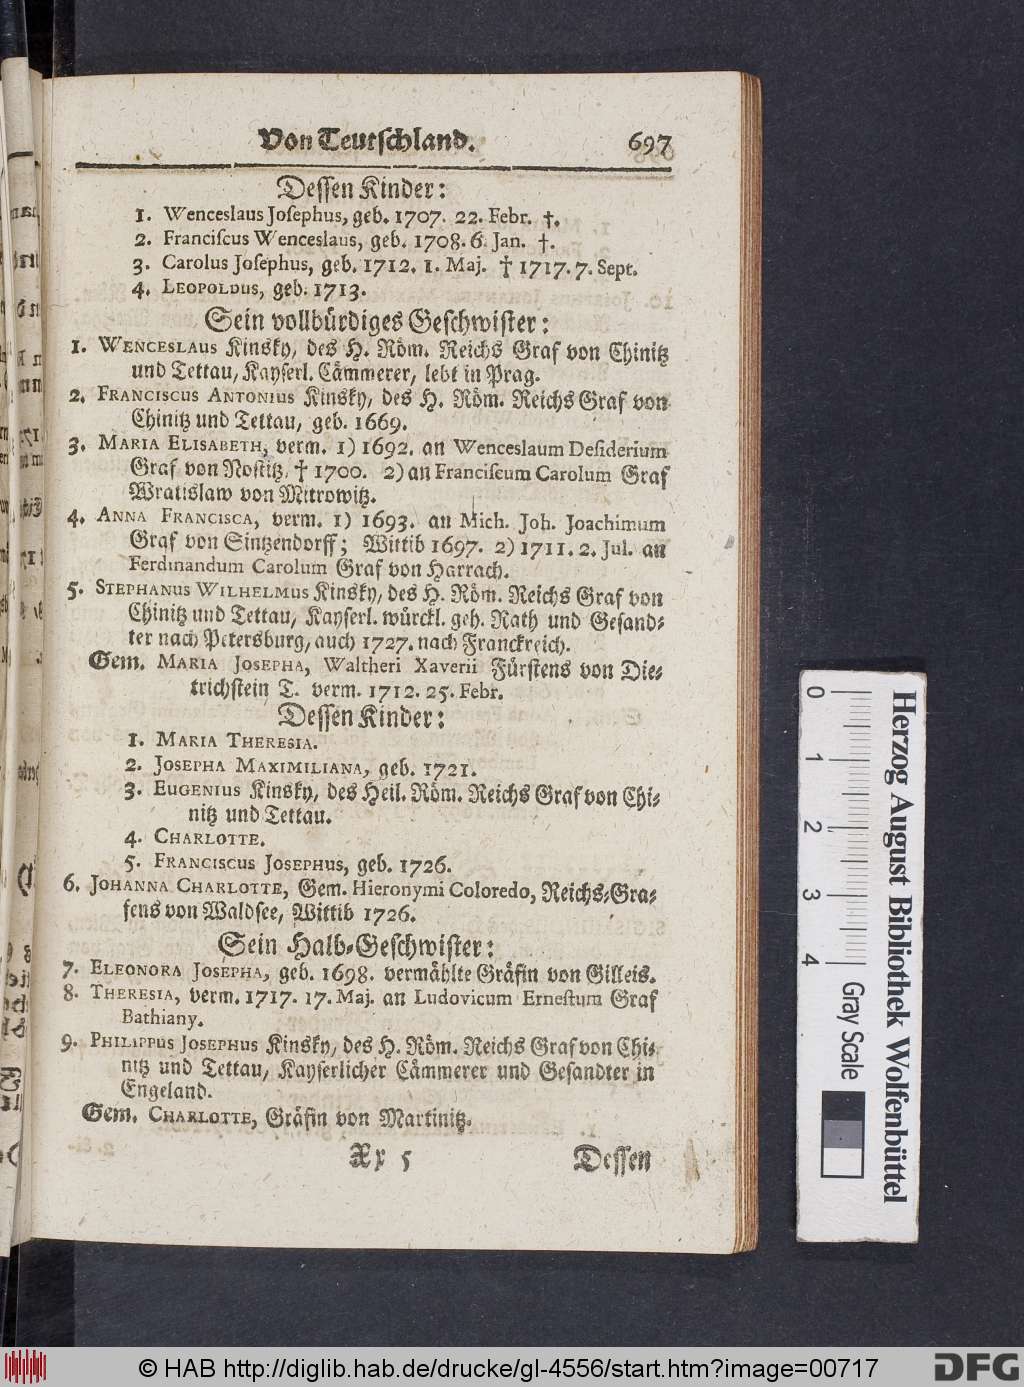 Von Teutschland. 697
Dessen Kinder:
1. Wenceslaus Josephus, geb. 1707. 22. Febr. †.
2. Franciscus Wenceslaus, geb. 1708. 6. Jan. †.
3. Carolus Josephus, geb. 1712. 1. Maj. † 1717. 7. Sept.
4. LEOPOLDUS, geb. 1713.
Sein vollbürdiges Geschwister:
1. WENCESLAUS Kinsky, des H. Röm. Reichs Graf von Chinitz
und Tettau, Kayserl. Cämmerer, lebt in Prag.
2. FRANCISCUS ANTONIUS Kinsky, des H. Röm. Reichs Graf von
Chinitz und Tettau, geb. 1669.
3. MARIA ELISABETH, verm. 1) 1692. an Wenceslaum Desiderium
Graf von Nostitz, † 1700. 2) an Franciscum Carolum Graf
Wratislaw von Mitrowitz.
4. ANNA FRANCISCA, verm. 1) 1693. an Mich. Joh. Joachimum
Graf von Sintzendorff; Wittib 1697. 2) 1711. 2. Jul. an
Ferdinandum Carolum Graf von Harrach.
5. STEPHANUS WILHELMUS Kinsky, des H. Röm. Reichs Graf von
Chinitz und Tettau, Kayserl. würckl. geh. Rath und Gesand-
ter nach Petersburg, auch 1727. nach Franckreich.
Gem. MARIA JOSEPHA, Waltheri Xaverii Fürstens von Die-
trichstein T. verm. 1712. 25. Febr.
Dessen Kinder:
1. MARIA THERESIA.
2. JOSEPHA MAXIMILIANA, geb. 1721.
3. EUGENIUS Kinsky, des Heil. Röm. Reichs Graf von Chi-
nitz und Tettau.
4. CHARLOTTE.
5. FRANCISCUS JOSEPHUS, geb. 1726.
6. JOHANNA CHARLOTTE, Gem. Hieronymi Coloredo, Reichs-Gra-
fens von Waldsee, Wittib 1726.
Sein Halb-Geschwister:
7. ELEONORA JOSEPHA, geb. 1698. vermählte Gräfin von Gilleis.
8. THERESIA, verm. 1717. 17. Maj. an Ludovicum Ernestum Graf
Bathiany.
9. PHILIPPUS JOSEPHUS Kinsky, des H. Röm. Reichs Graf von Chi-
nitz und Tettau, Kayserlicher Cämmerer und Gesandter in
Engeland.
Gem. CHARLOTTE, Gräfin von Martinitz.
Xx 5 Dessen
0 1 2 3 4 Gray Scale
Herzog August Bibliothek Wolfenbüttel
© HAB http://diglib.hab.de/drucke/gl-4556/start.htm?image=00717
DFG